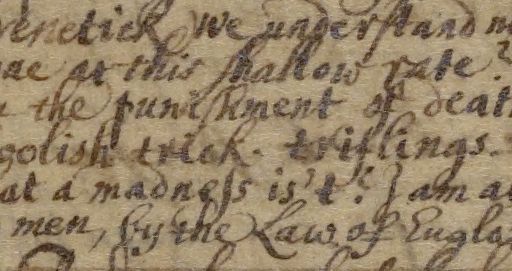 heretick we understand n
at this shallow rate?
the punishment of deat
foolish trick. triflings.
at a madness is't? I am a
men, by the Law of Engla